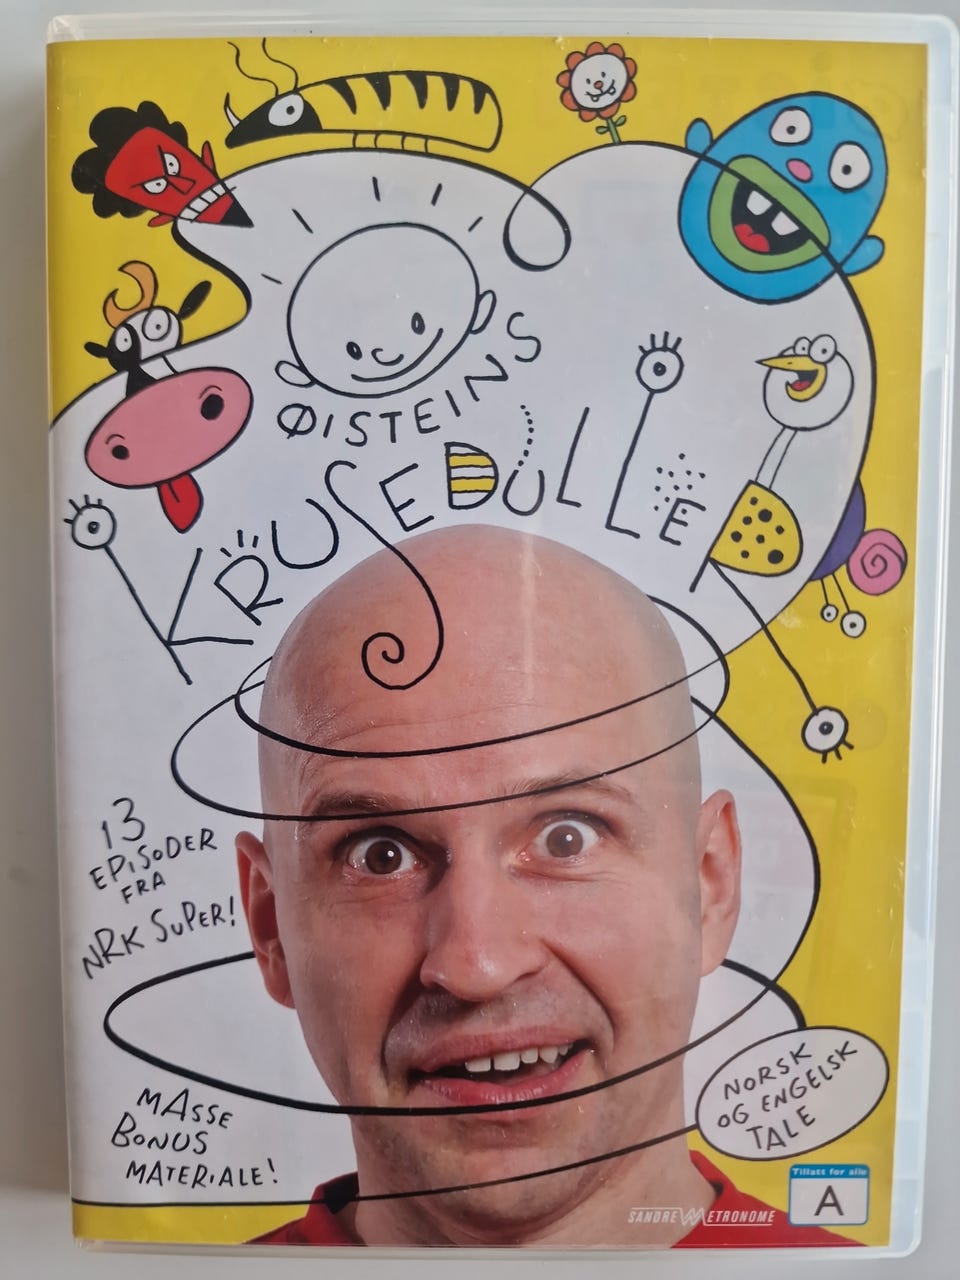 ØISTEINS
KRUSEDULLER
13
EPISODER
FRA
NRK SUPER!
MASSE
BONUS
MATERIALE!
NORSK
OG ENGELSK
TALE
Tillatt for alle
A
SANDREW METRONOME